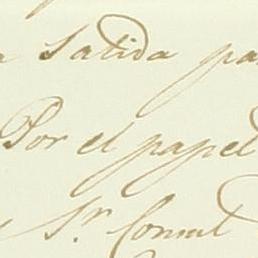 a Salida pa
Por el papel
y Sr. Consul